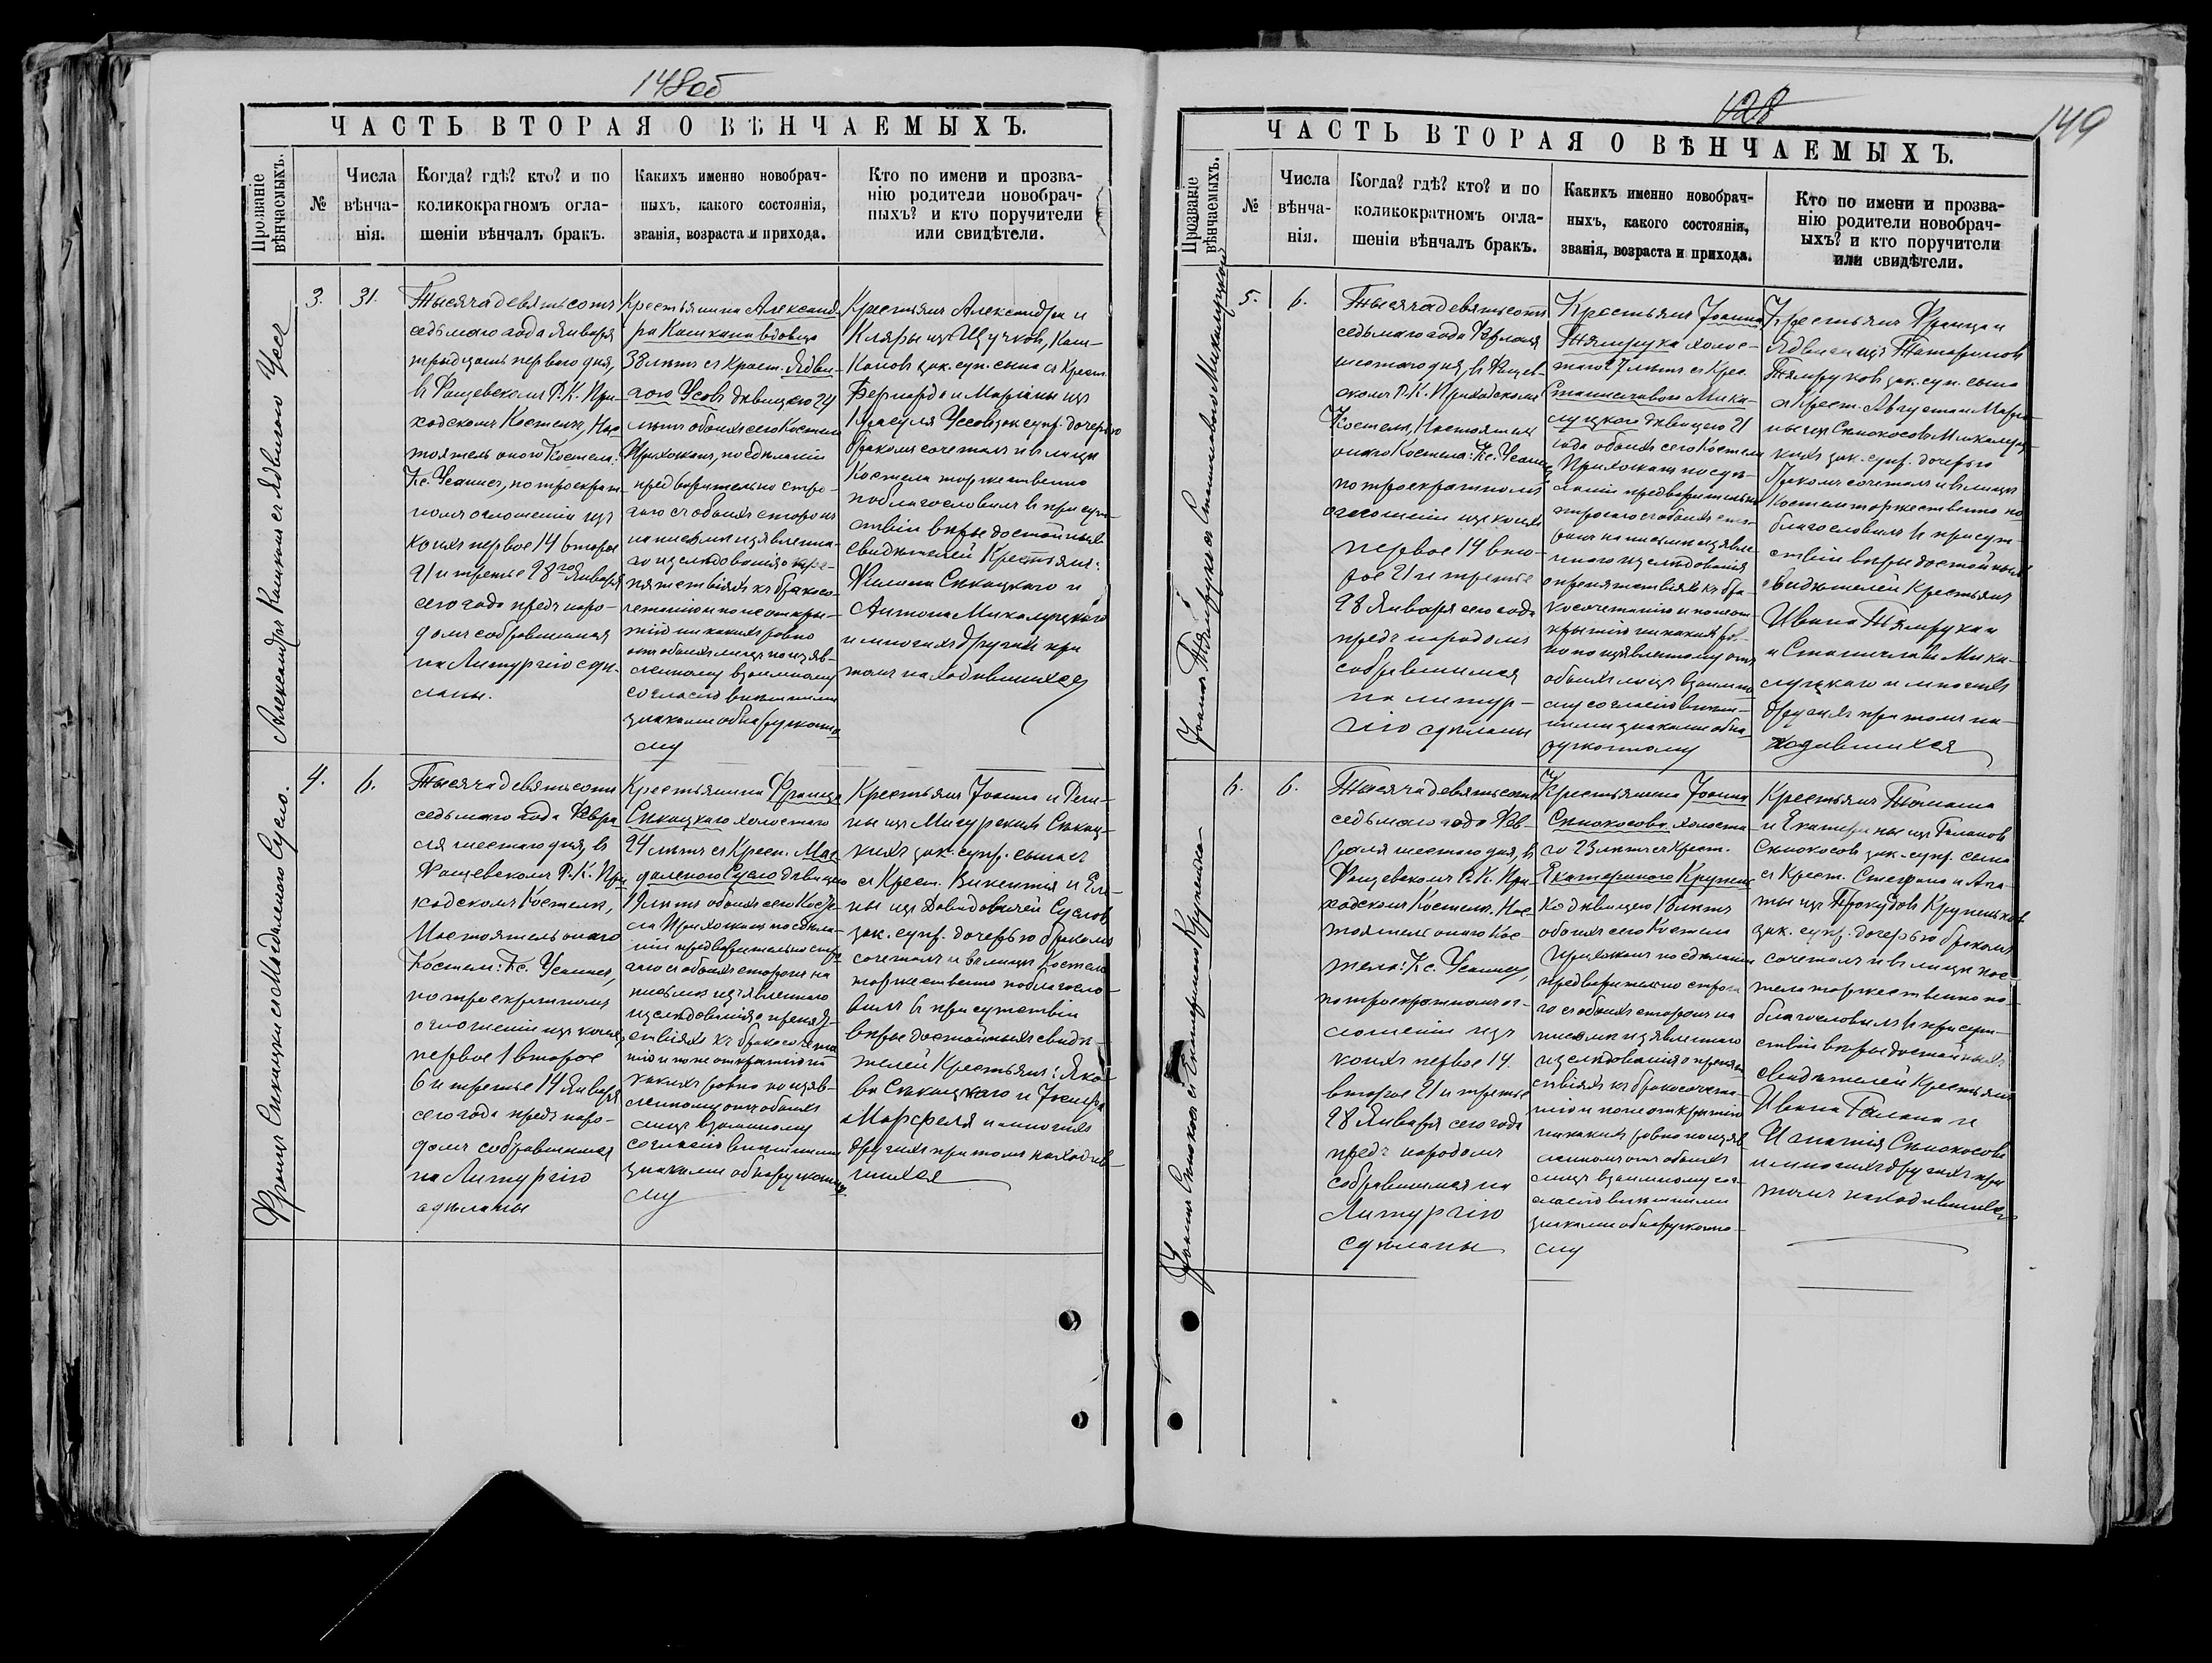 148об
ЧАСТЬ ВТОРАЯ О ВѢНЧАЕМЫХЪ.
Прозваніе вѣнчаемыхъ.
№
Числа вѣнча-
нія.
Когда? гдѣ? кто? и по
коликократномъ огла-
шеніи вѣнчалъ бракъ.
Какихъ именно новобрач-
ныхъ, какого состоянія,
званія, возраста и прихода.
Кто по имени и прозва-
нію родители новобрач-
ныхъ? и кто поручители
или свидѣтели.
Александръ Кашканъ съ Ядвигою Усъ
3.
31.
Тысяча девятьсотъ
седьмаго года Января
тридцать перваго дня,
въ Фащевскомъ Р.К. При-
ходскомъ Костелѣ, Нас-
тоятель онаго Костела:
Кс. Усаннсъ, по троекрат-
номъ оглошеніи изъ
коихъ первое 14 второе
21 и третье 28го Января
сего года предъ наро-
домъ собравшимся
на Литургію сдѣ-
ланы.
Крестьянина Александ-
ра Кашкана вдовца
38 лѣтъ съ Крест. Ядви-
гою Усовъ дѣвицею 24
лѣтъ обоихъ сего Костела
Прихожанъ, по сдѣланіи
предварительно стро-
гаго съ обоихъ сторонъ
на письмѣ изъявленна-
го изслѣдованія о пре-
пятствіяхъ къ бракосо-
четанію и по не откры-
тію никакихъ равно
отъ обоихъ лицъ по изъяв-
ленному взаимному
согласію внѣшними
знаками обнаруженно-
му
Крестьянъ Александра и
Кляры изъ Щучковъ, Каш-
кановъ зак. суп. сына съ Крест.
Бернарда и Маріаны изъ
Красуля Усовъ зак. супр. дочерью
бракомъ сочеталъ и въ лицѣ
Костела торжественно
поблагословилъ въ присут-
ствіи вѣры достойныхъ
свидѣтелей Крестьянъ:
Филипа Сѣкацкаго и
Антона Микалуцкого
и многихъ другихъ при
томъ находившихся
Францъ Сѣкацкій съ Магдаленою Сусло.
4.
6.
Тысяча девятьсотъ
седьмаго года Февра-
ля шестаго дня, въ
Фащевскомъ Р.К. При-
ходскомъ Костелѣ,
Настоятель онаго
Костела: Кс. Усаннсъ,
по троекратномъ
оглошеніи изъ коихъ
первое 1 второе
6 и третье 14 Января
сего года предъ наро-
домъ собравшимся
на Литургію
сдѣланы
Крестьянина Франца
Сѣкацкаго холостаго
24 лѣтъ съ Крест. Маг-
даленою Сусло дѣвицею
19 лѣтъ обоихъ сего Косте-
ла Прихожанъ по сдѣла-
ніи предварительно стро-
гаго съ обоихъ сторонъ на
письмѣ изъявленнаго
изслѣдованія о препят-
ствіяхъ къ бракосочета-
нію и по не открытію ни
какихъ равно по изъяв-
ленному отъ обоихъ
лицъ взаимному
согласію внѣшними
знаками обнаруженно-
му
Крестьянъ Іоанна и Реги-
ны изъ Мигурскихъ Сѣкац-
кихъ зак. супр. сына съ
съ Крест. Викентія и Еле-
ны изъ Давидовичей Сусловъ
зак. супр. дочерью бракомъ
сочеталъ и въ лицѣ Костела
торжественно поблагосло-
вилъ въ присутствіи
вѣры достойныхъ свидѣ-
телей Крестьянъ: Яко-
ва Сѣкацкаго и Іосифа
Марфеля и многихъ
другихъ при томъ находив-
шихся
128
149
ЧАСТЬ ВТОРАЯ О ВѢНЧАЕМЫХЪ.
Прозваніе вѣнчаемыхъ.
№
Числа вѣнча-
нія.
Когда? гдѣ? кто? и по
коликократномъ огла-
шеніи вѣнчалъ бракъ.
Какихъ именно новобрач-
ныхъ, какого состоянія,
званія, возраста и прихода.
Кто по имени и прозва-
нію родители новобрач-
ыхъ? и кто поручители
или свидѣтели.
Іоаннъ Тямрука съ Станиславою Микалуцкой
5.
6.
Тысяча девятьсотъ
седьмаго года Февраля
шестаго дня, въ Фащев-
скомъ Р.К. Приходскомъ
Костелѣ, Настоятель
онаго Костела: Кс. Усаннсъ
по троекратномъ
оглошеніи изъ коихъ
первое 14 вто-
рое 21 и третье
28 Января сего года
предъ народомъ
собравшимся
на литур-
гію сдѣланы
Крестьянъ Іоанна
Тямрука холос-
таго 27 лѣтъ съ Крес.
Станиславою Мика-
луцкою дѣвицею 21
года обоихъ сего Костела
Прихожанъ по сдѣ-
ланіи предварительно
строгаго съ обоихъ сто-
ронъ на письмѣ изъявле-
ннаго изслѣдованія
о препятствіяхъ къ бра-
косочетанію и по не от-
крытію никакихъ рав-
но по изъявленному отъ
обоихъ лицъ взаимно-
му согласію внѣш-
ними знаками обна-
руженному
Крестьянъ Франца и
Ядвиги изъ Татариновъ
Тямруковъ зак. суп. сына
съ Крест. Августа и Маріа-
ны изъ Сѣнокосовъ Микалуц-
кихъ зак. супр. дочерью
бракомъ сочеталъ и въ лицѣ
Костела торжественно по-
благословилъ въ присут-
ствіи вѣры достойныхъ
свидѣтелей Крестьянъ
Ивана Тямрука и
и Станислава Мика-
луцкаго и многихъ
другихъ при томъ на-
ходившихся
Іоаннъ Сѣнокосъ съ Екатериною Крупенько
6.
6.
Тысяча девятьсотъ
седьмаго года Фев-
раля шестаго дня, въ
Фащевскомъ Р.К. При-
ходскомъ Костелѣ. Нас-
тоятель онаго Кос-
тела: Кс. Усаннсъ,
по троекратномъ ог-
лошеніи изъ
коихъ первое 14.
второе 21 и третье
28 Января сего года
предъ народомъ
собравшимся на
Литургію
сдѣланы
Крестьянина Іоанна
Сѣнокосова холоста-
го 23 лѣтъ съ Крест.
Екатериною Крупень-
ко дѣвицею 18 лѣтъ
обоихъ сего Костела
Прихожанъ по сдѣланіи
предварительно строга-
го съ обоихъ сторонъ на
письмѣ изъявленнаго
изслѣдованія о препят-
ствіяхъ къ бракосочета-
нію и по не открытію
никакихъ равно по изъяв-
ленному отъ обоихъ
лицъ взаимному сог-
ласію внѣшними
знаками обнаруженно-
му
Крестьянъ Томаша
и Екатерины изъ Галановъ
Сѣнокосовъ зак. супр. сына
съ Крест. Стефана и Ага-
ты изъ Прокудовъ Крупеньковъ
зак. супр. дочерью бракомъ
сочеталъ и въ лицѣ кос-
тела торжественно по-
благословилъ въ присут-
ствіи вѣры достойныхъ
свидѣтелей Крестьянъ
Ивана Галана и
Игнатія Сѣнокосова
и многихъ другихъ при
томъ находившихся